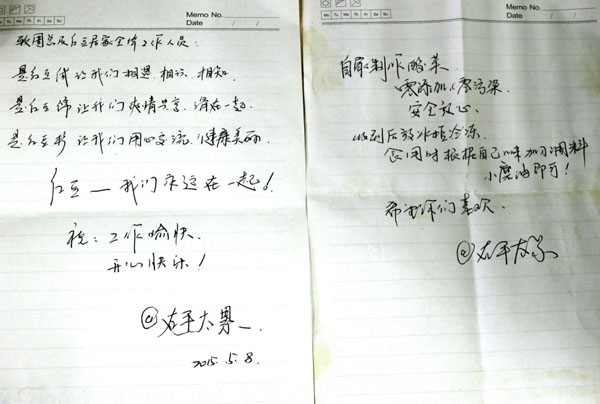 Memo No.
Mo Tu We Th Fr Sa Su
Date / /
致周总及红豆居家全体工作人员:
是红豆衣让我们相遇 相识 相知.
是红豆情让我们 共享. 一起.
是红豆衫 让我们用心交流. 健康美丽.
红豆——我们永远在一起!
祝:工作愉快.
开心快乐!
@ 太
2015. 5. 8.
Memo No.
Mo Tu We Th Fr Sa Su
Date / /
自家制作酸菜.
零添加、零污染.
安全放心.
收到后放冰箱冷冻.
食用时根据自己口味加入调料
小磨油即可!
希望你们喜欢.
@